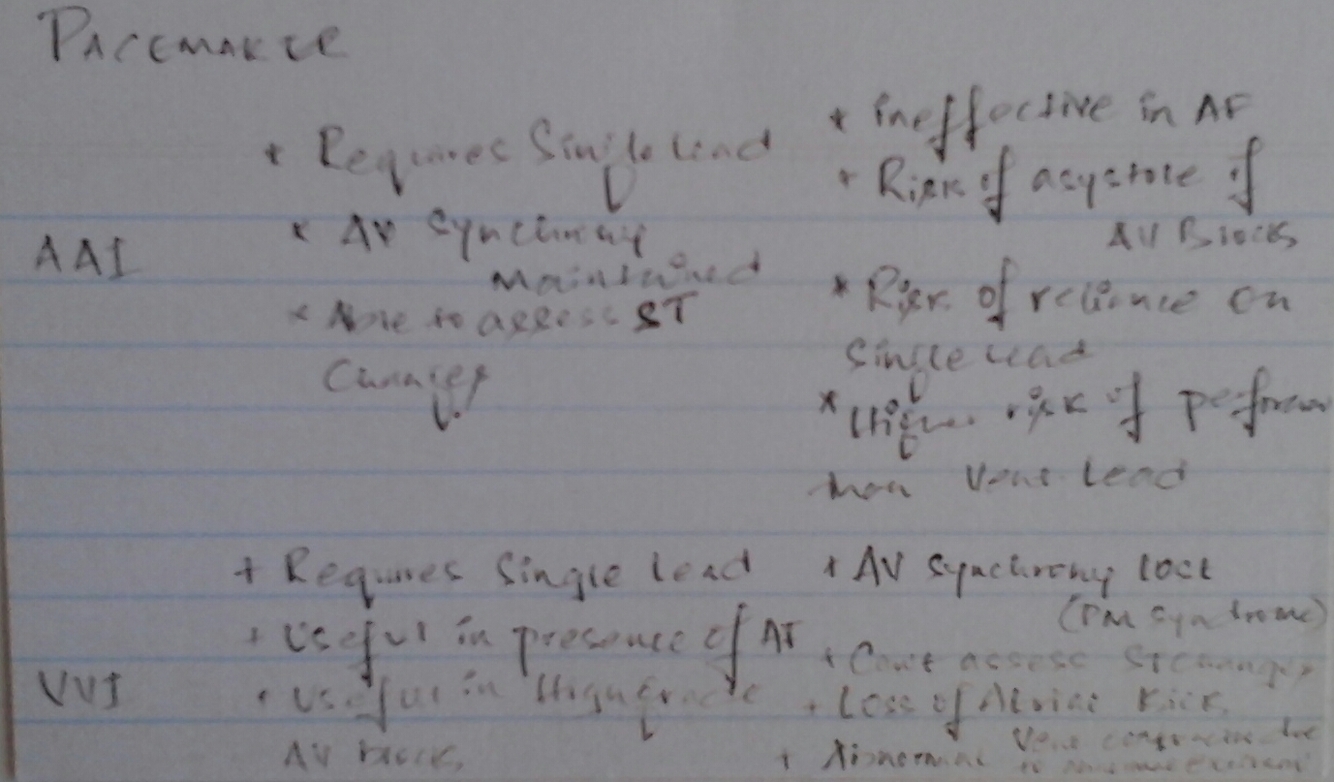 PACEMAKER
* Requires Single Lead
* AV Synchrony
maintained
* Able to assess ST
Changes
AAI
* ineffective in AF
* Risk of asystole if
AV Blocks
* Risk of reliance on
Single lead
* Higher risk of perforation
than Vent. Lead
VVI
+ Requires Single Lead
+ Useful in presence of AT
+ Useful in High grade
AV Block
+ AV Synchrony lost
(PM Syndrome)
+ Can't assess ST changes
+ Loss of Atrial Kick
+ Abnormal Vent contraction due
to